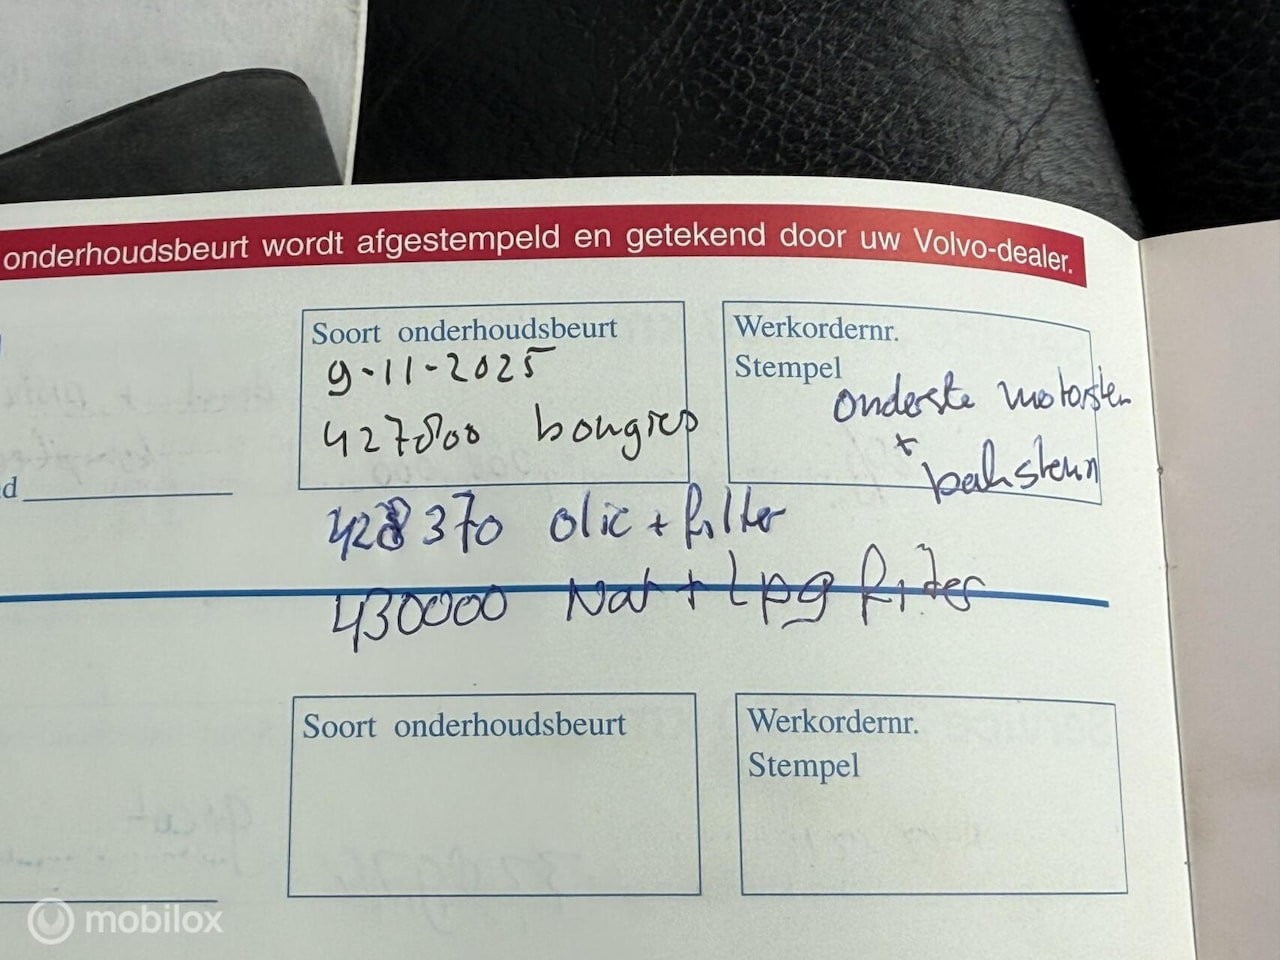 onderhoudsbeurt wordt afgestempeld en getekend door uw Volvo-dealer.
Soort onderhoudsbeurt
9-11-2025
427800 bougies
Werkordernr.
Stempel
onderste motorsteun
+
baksteun
d
428370 olie + filter
430000 Nat + Lpg filter
Soort onderhoudsbeurt
Werkordernr.
Stempel
mobilox